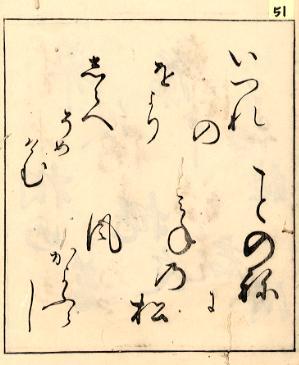 ことのね
に
みねの松
風
かよふらし
いつれ
の
をより
しらへ
そめ
けむ
51